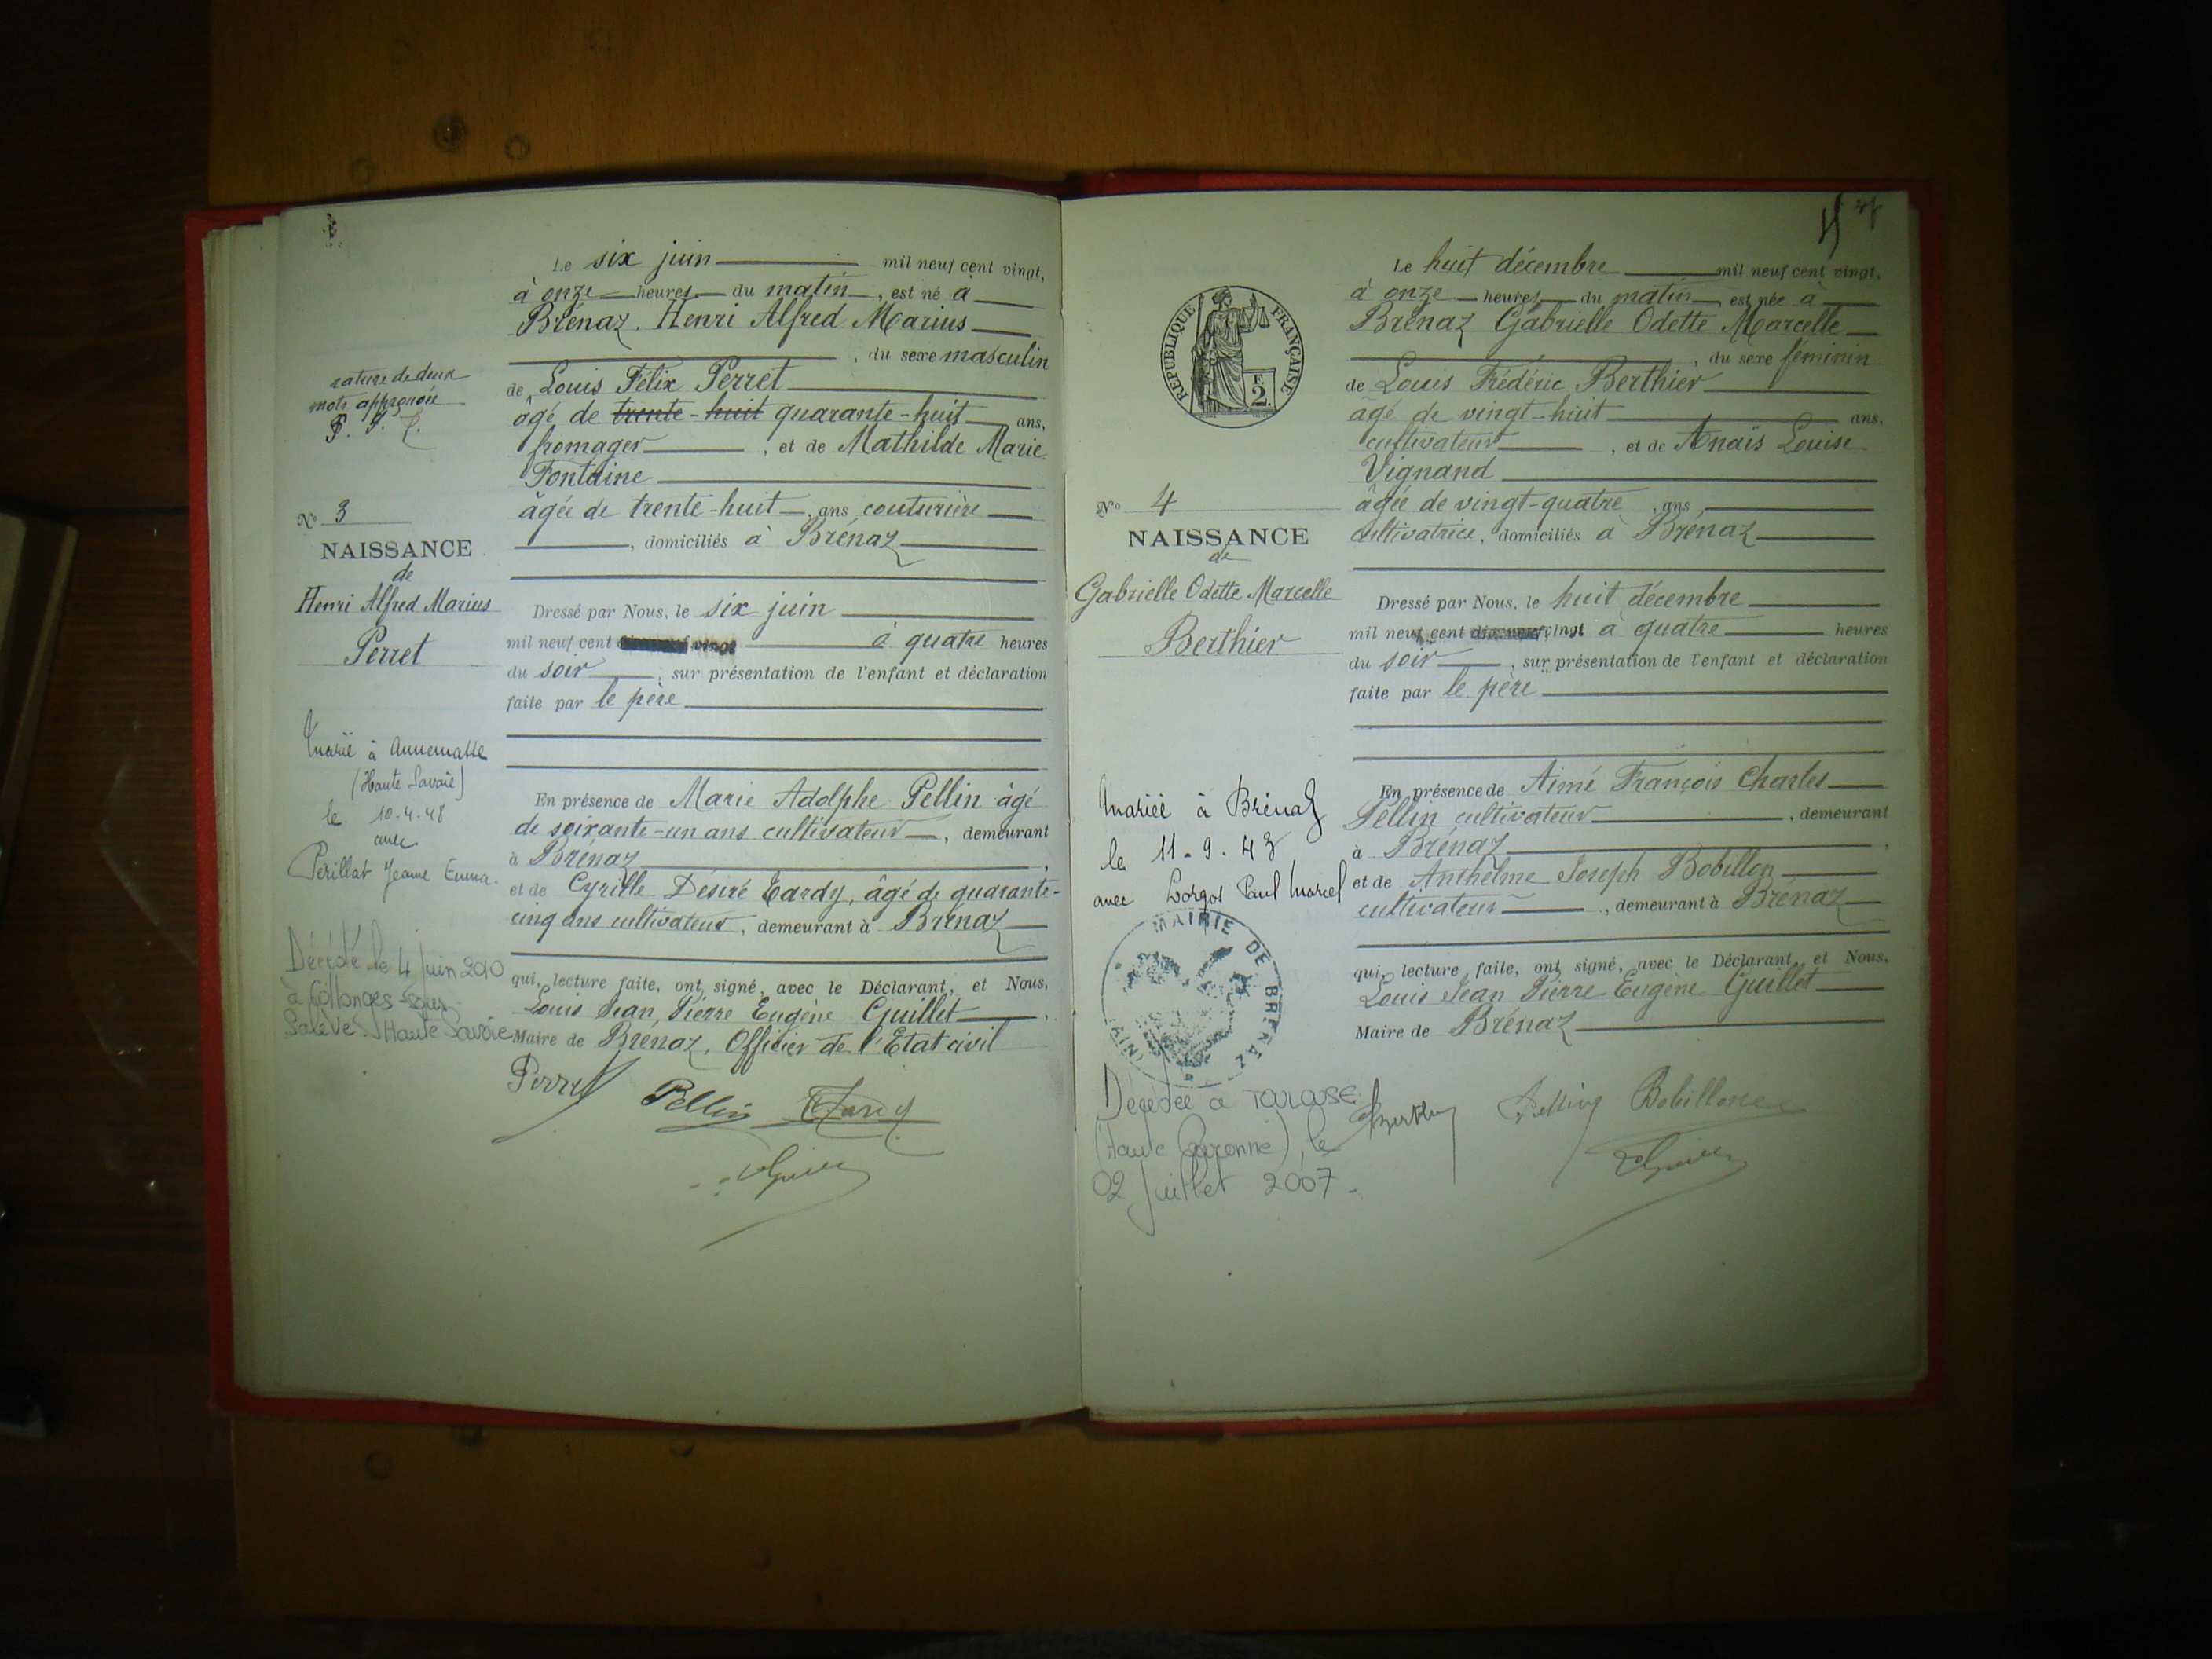 Le six juin mil neuf cent vingt,
à onze heures du matin, est né à
Brénaz, Henri Alfred Marius
, du sexe masculin
de Louis Félix Perret
âgé de trente-huit quarante-huit ans,
fromager, et de Mathilde Marie
Fontaine
âgée de trente-huit, ans couturière
, domiciliés à Brénaz
Dressé par Nous, le six juin
mil neuf cent vingt à quatre heures
du soir, sur présentation de l'enfant et déclaration
faite par le père
En présence de Marie Adolphe Pellin âgé
de soixante-un ans cultivateur, demeurant
à Brénaz,
et de Cyrille Désiré Tardy, âgé de quarante-
cinq ans cultivateur, demeurant à Brénaz
qui, lecture faite, ont signé, avec le Déclarant, et Nous,
Louis Jean Pierre Eugène Guillet,
Maire de Brénaz, Officier de l'Etat civil
Perret Pellin Tardy
rature de deux
mots approuvée
No 3
NAISSANCE
de
Henri Alfred Marius
Perret
Marié à Annemasse
(Haute Savoie)
le 10-4-48
avec
Périllat Jeanne Emma.
Décédé le 4 Juin 2010
à Collonges-sous-
Salève. Haute Savoie
Le huit décembre mil neuf cent vingt,
à onze heures du matin, est née à
Brénaz Gabrielle Odette Marcelle
, du sexe féminin
de Louis Frédéric Berthier
âgé de vingt-huit ans,
cultivateur, et de Anaïs Louise
Vignand
âgée de vingt-quatre, ans,
cultivatrice, domiciliés à Brénaz
Dressé par Nous, le huit décembre
mil neuf cent vingt à quatre heures
du soir, sur présentation de l'enfant et déclaration
faite par le père
En présence de Aimé François Charles
Pellin cultivateur, demeurant
à Brénaz,
et de Anthelme Joseph Bobillon
cultivateur, demeurant à Brénaz
qui, lecture faite, ont signé, avec le Déclarant, et Nous,
Louis Jean Pierre Eugène Guillet
Maire de Brénaz
Berthier Pellin Bobillon
RÉPUBLIQUE FRANÇAISE
2
No 4
NAISSANCE
de
Gabrielle Odette Marcelle
Berthier
Mariée à Brénaz
le 11-9-43
avec Paul Marcel
MAIRIE DE BRÉNAZ
(AIN)
Décédée à TOULOUSE
(Haute Garonne), le
02 Juillet 2007.